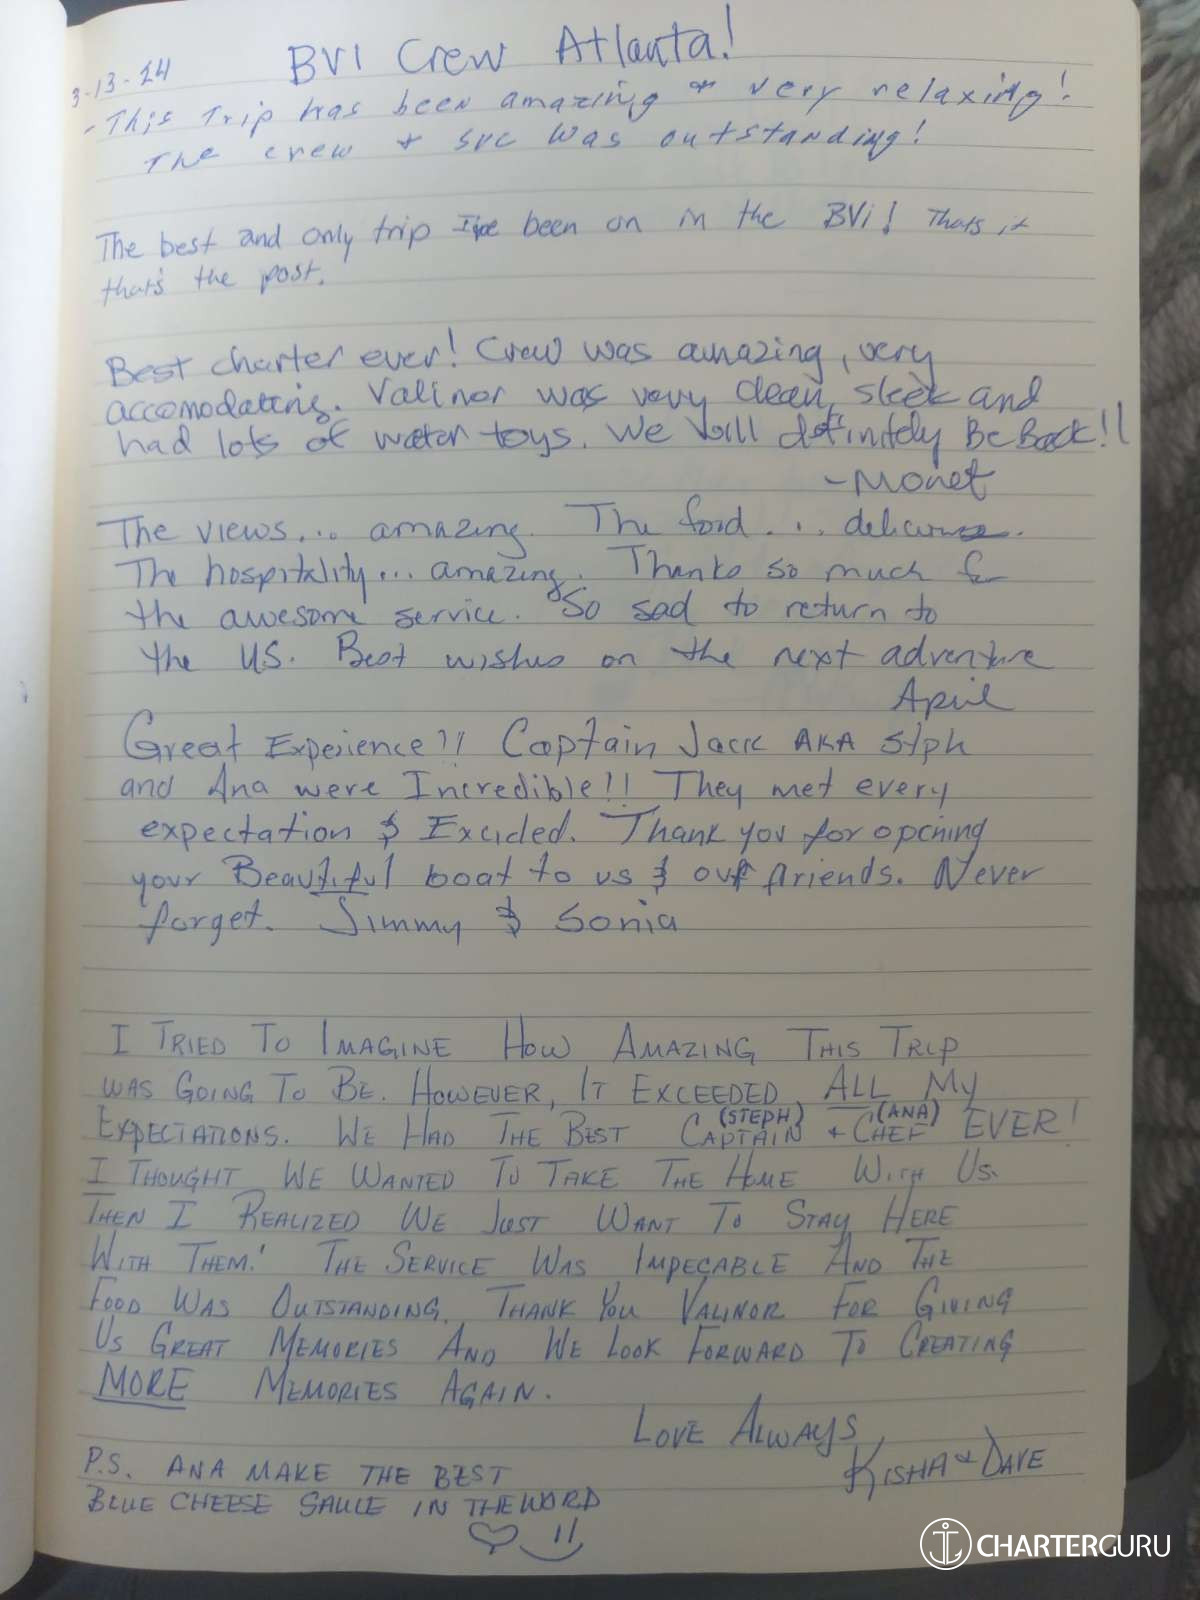 BVI Crew Atlanta!
3-13-24
- This Trip has been amazing & very relaxing!
The crew + svc was outstanding!
The best and only trip I've been on in the BVI! Thats it
that's the post.
Best charter ever! Crew was amazing, very
accomodating. Valinor was very clean, sleek and
had lots of water toys. We will definitely Be Back!!
- Monet
The views... amazing. The food... delicious.
The hospitality... amazing. Thanks so much for
the awesome service. So sad to return to
the US. Best wishes on the next adventure
April
Great Experience!!! Captain Jack AKA Stph
and Ana were Incredible!! They met every
expectation & Excided. Thank you for opening
your Beautiful boat to us & our friends. Never
forget. Jimmy & Sonia
I TRIED TO IMAGINE HOW AMAZING THIS TRIP
WAS GOING TO BE. HOWEVER, IT EXCEEDED ALL MY
(STEPH) (ANA)
EXPECTATIONS. WE HAD THE BEST CAPTAIN + CHEF EVER!
I THOUGHT WE WANTED TO TAKE THE HOME WITH US.
THEN I REALIZED WE JUST WANT TO STAY HERE
WITH THEM! THE SERVICE WAS IMPECABLE AND THE
FOOD WAS OUTSTANDING. THANK YOU VALINOR FOR GIVING
US GREAT MEMORIES AND WE LOOK FORWARD TO CREATING
MORE MEMORIES AGAIN.
LOVE ALWAYS
KISHA & DAVE
P.S. ANA MAKE THE BEST
BLUE CHEESE SAUCE IN THE WORD
CHARTERGURU